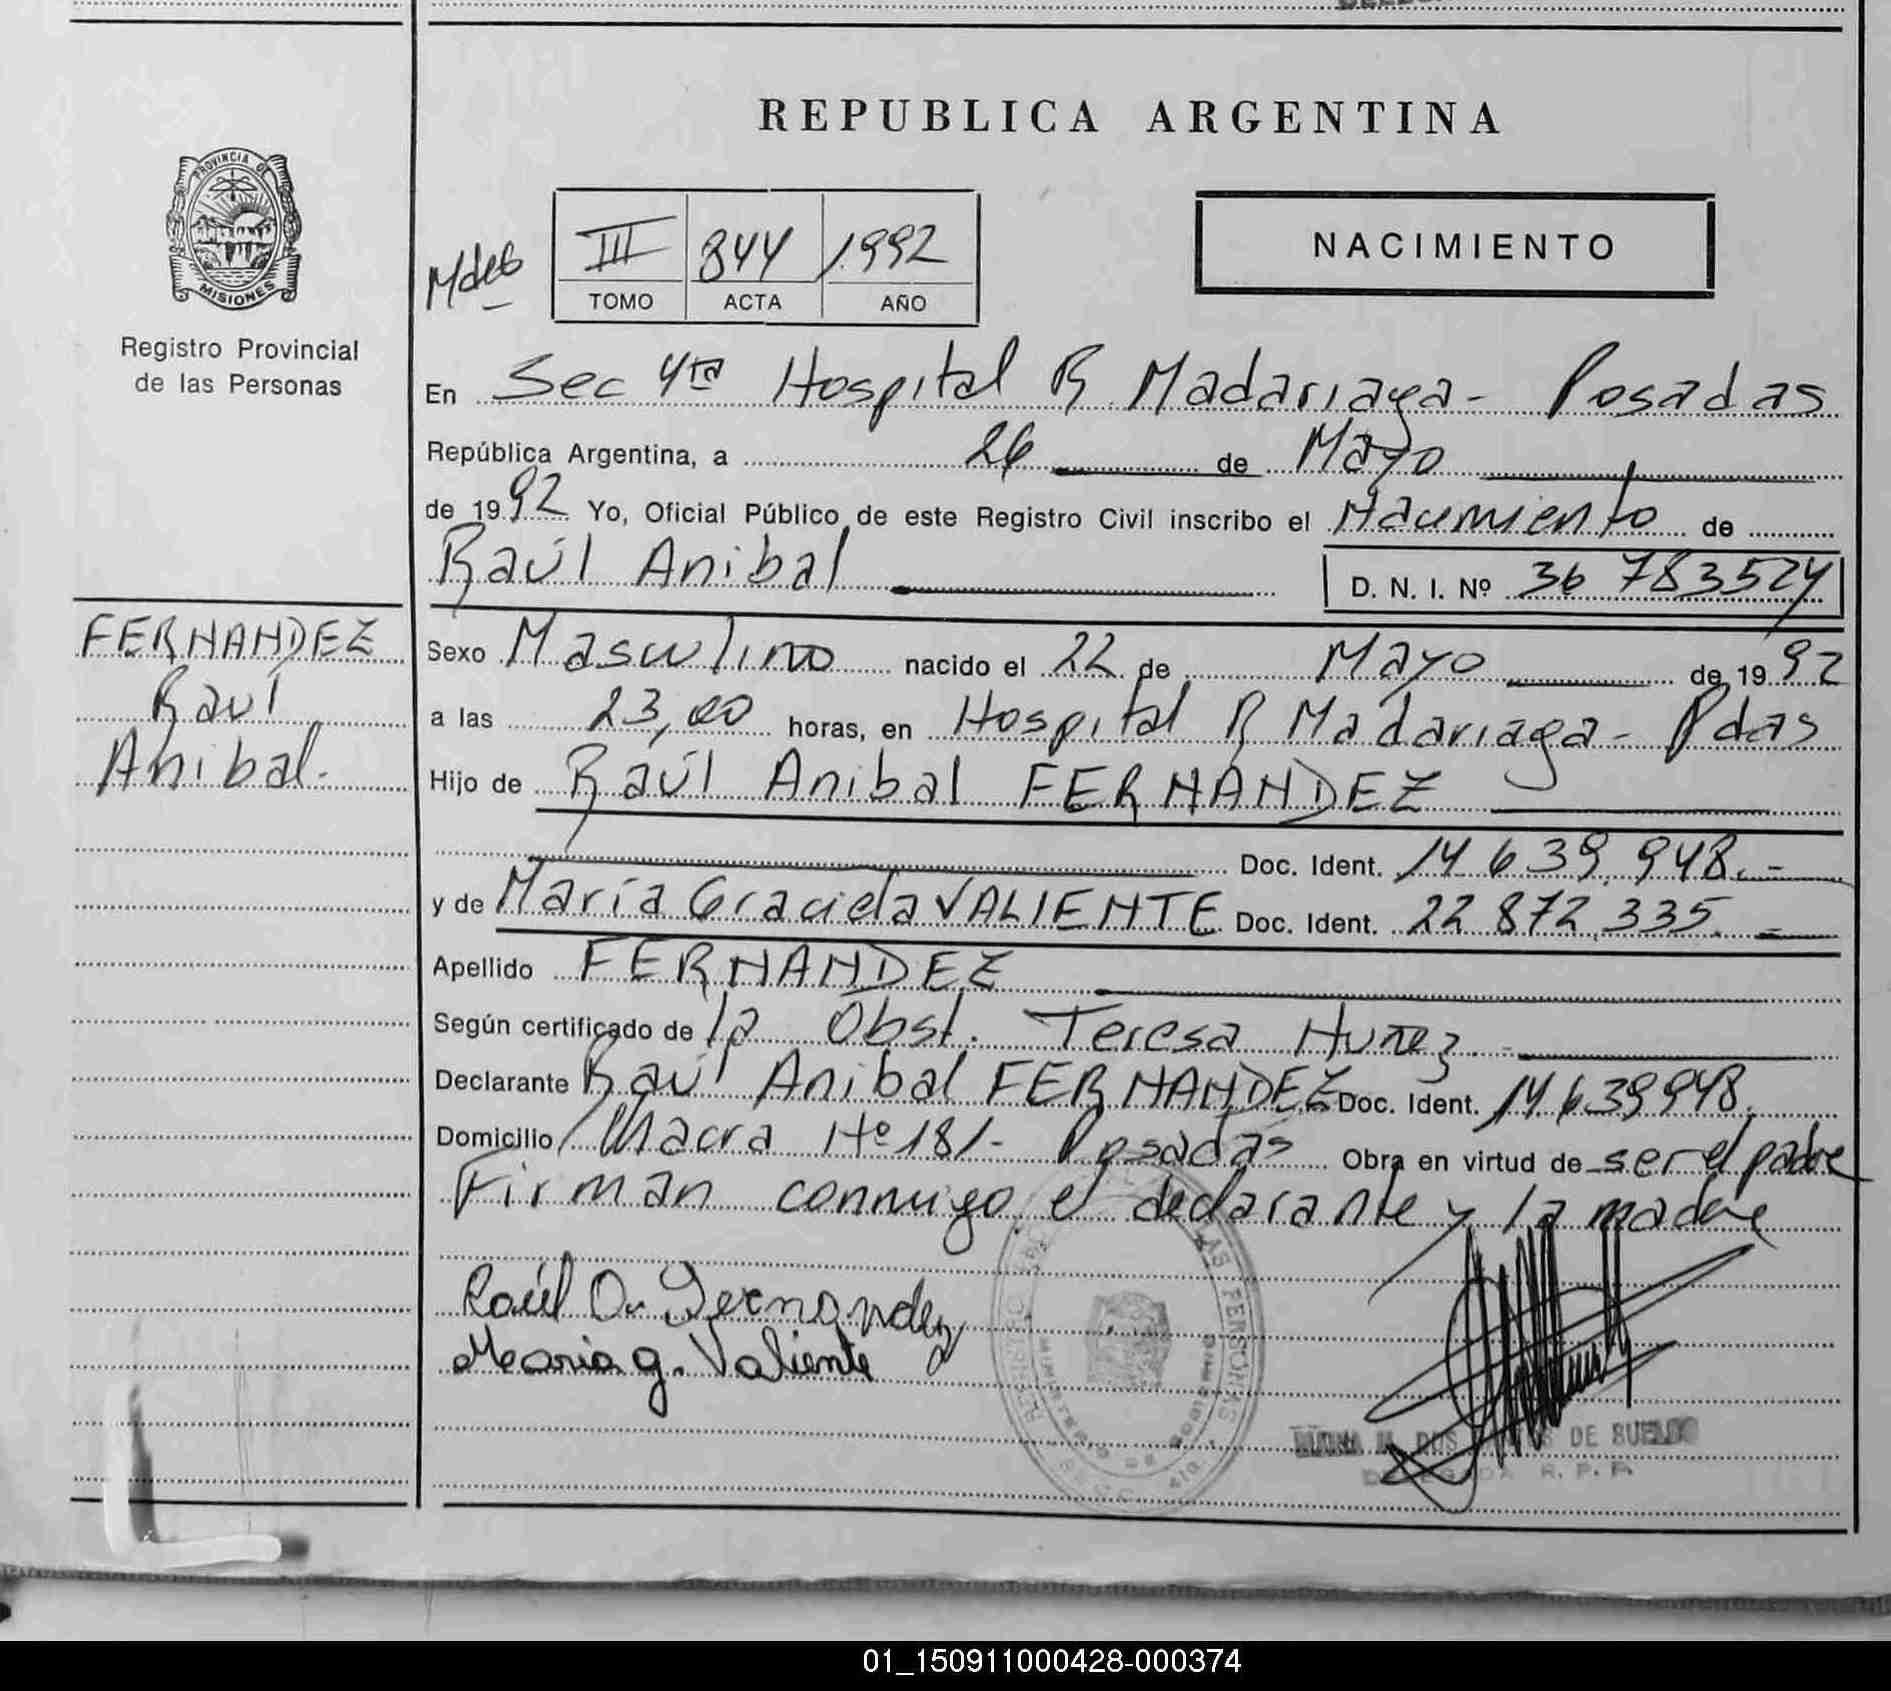 REPUBLICA ARGENTINA
PROVINCIA DE
MISIONES
Registro Provincial
de las Personas
III 844 1992
TOMO ACTA AÑO
NACIMIENTO
En Sec 4ta Hospital R Madariaga - Posadas
República Argentina, a 26 de Mayo
de 1992 Yo, Oficial Público de este Registro Civil inscribo el Nacimiento de
Raúl Anibal D. N. I. Nº 36 783524
FERNANDEZ
Raúl
Anibal.
Sexo Masculino nacido el 22 de Mayo de 1992
a las 23,00 horas, en Hospital R Madariaga - Pdas
Hijo de Raúl Anibal FERNANDEZ
Doc. Ident. 14 639.948.-
y de María Graciela VALIENTE Doc. Ident. 22 872.335.-
Apellido FERNANDEZ
Según certificado de la Obst. Teresa Nuñez.-
Declarante Raúl Anibal FERNANDEZ Doc. Ident. 14 639948.
Domicilio Nº 181- Posadas Obra en virtud de ser el padre
Firman conmigo el declarante y la madre
Raúl A. Fernandez
Maria g. Valiente
REGISTRO LAS PERSONAS
DOS DE BUENO
R. P. P.
01_150911000428-000374